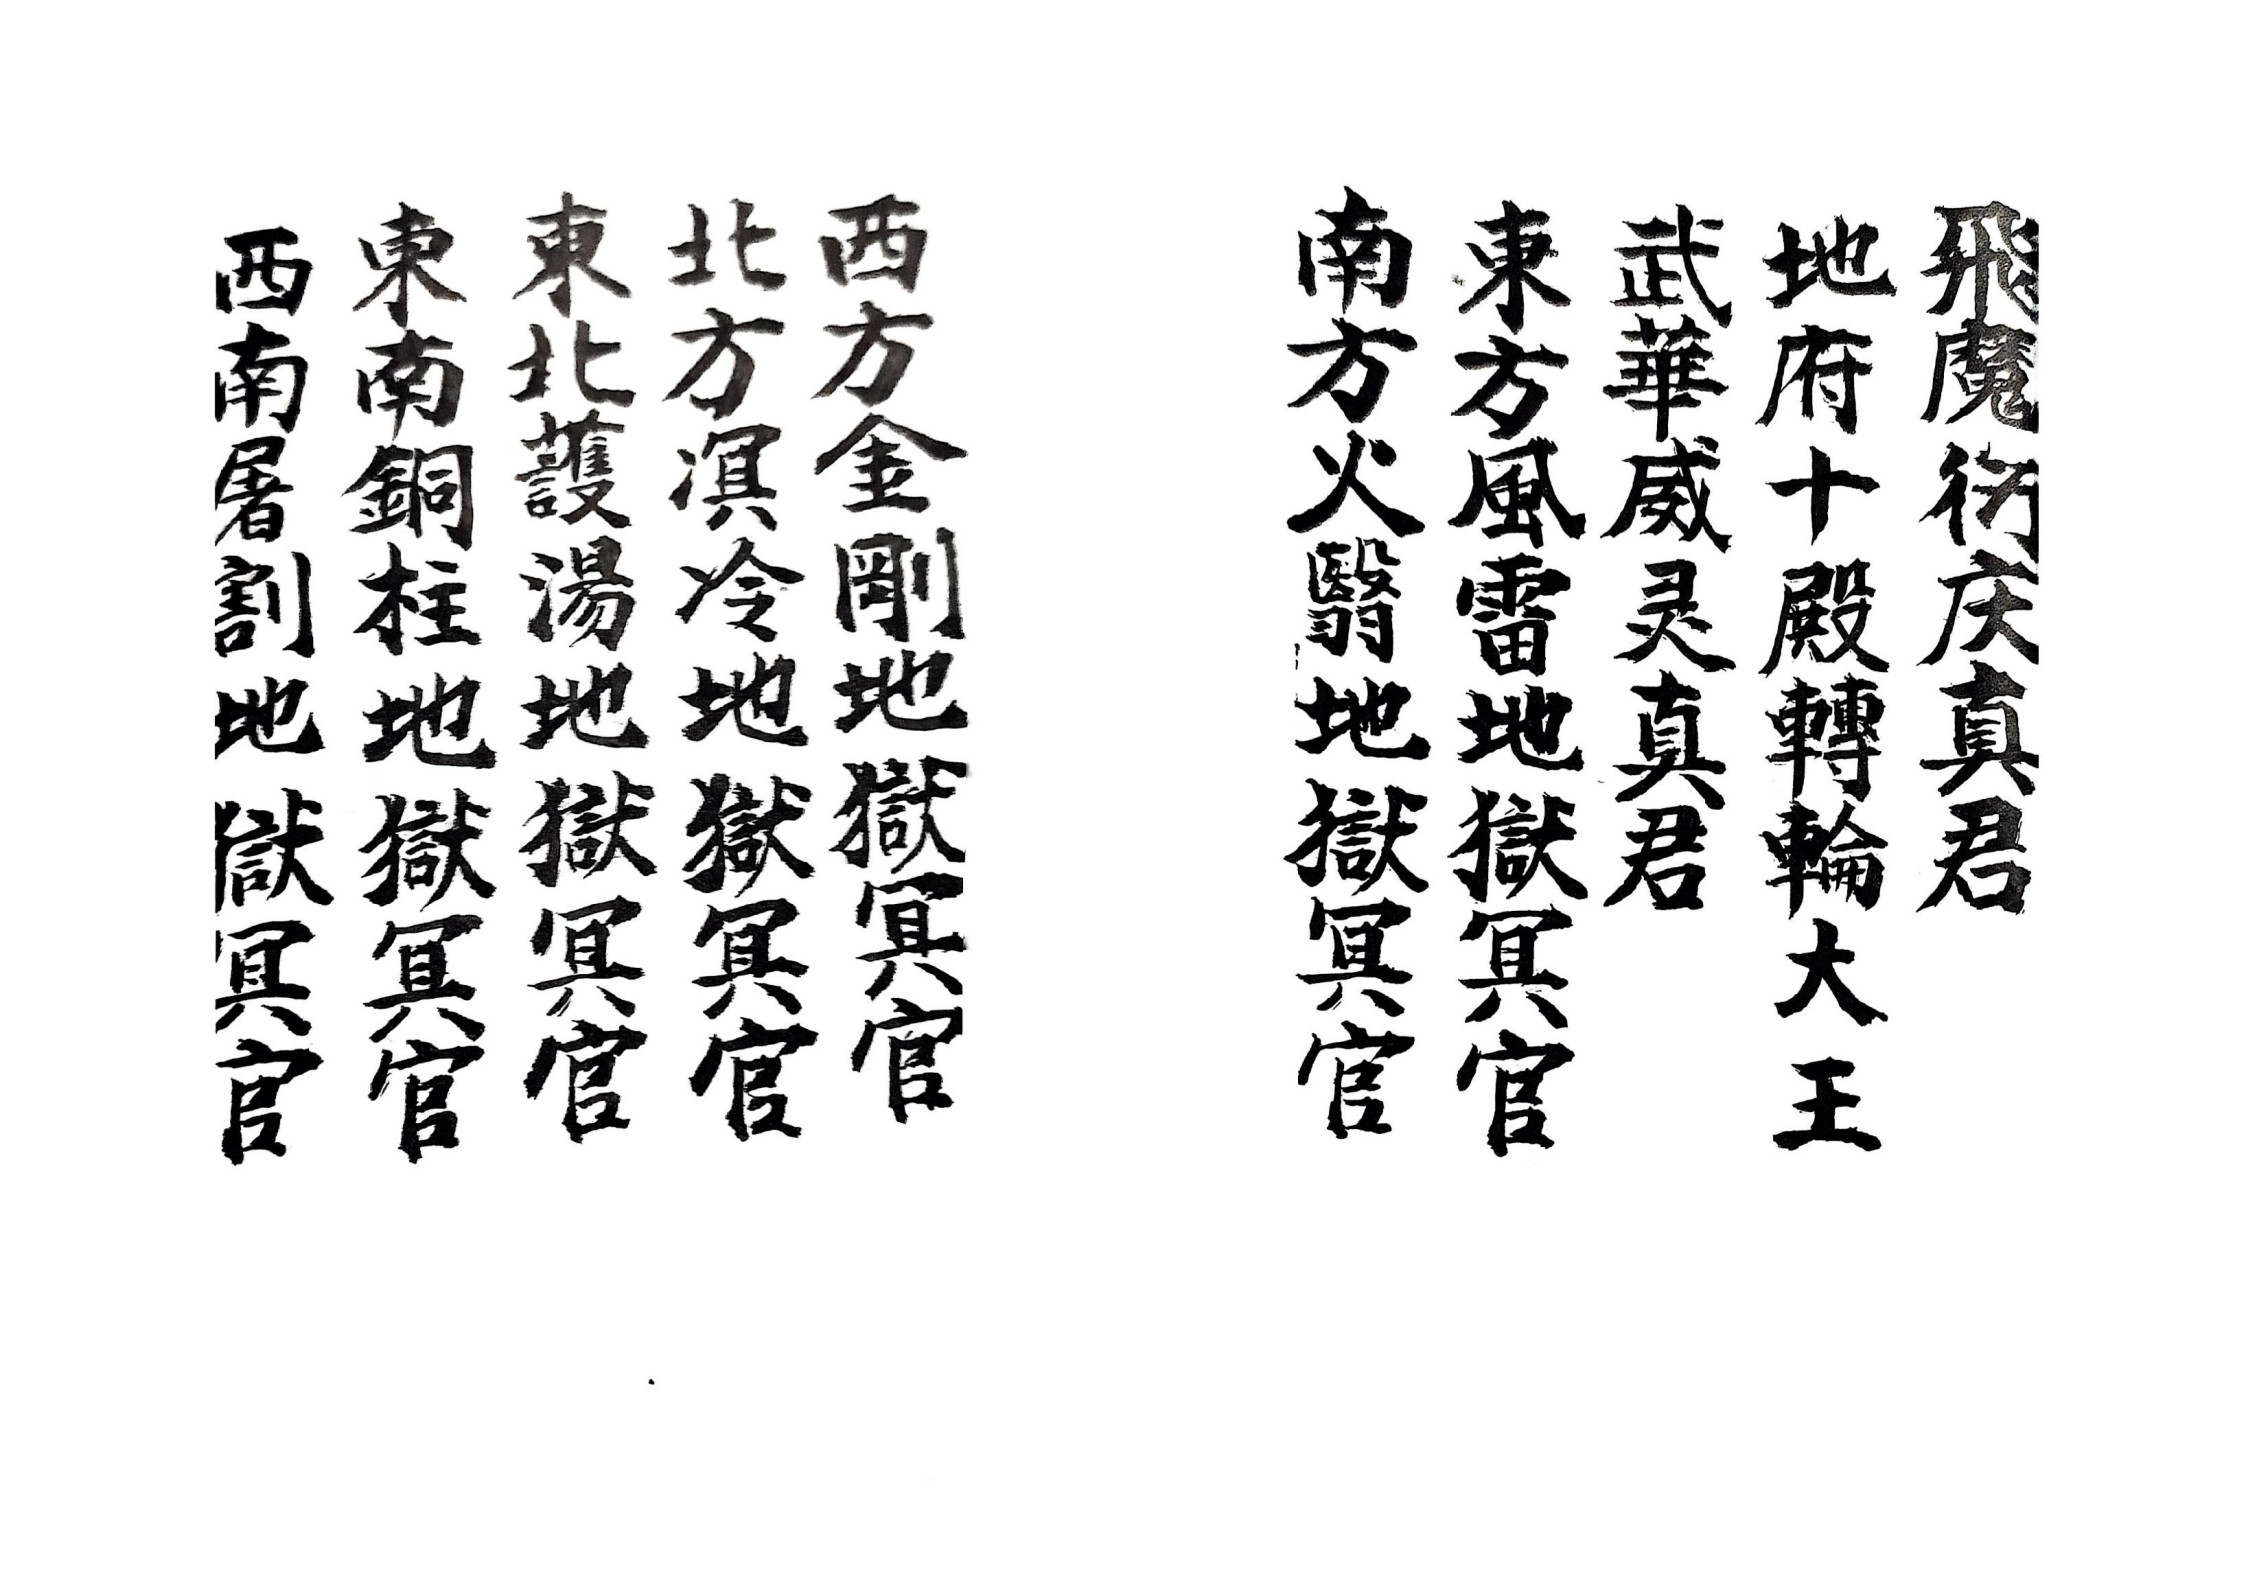 飛魔衍庆真君
地府十殿轉輪大王
武華威灵真君
東方風雷地獄冥官
南方火翳地獄冥官
西方金剛地獄冥官
北方溟冷地獄冥官
東北護湯地獄冥官
東南銅柱地獄冥官
西南屠割地獄冥官